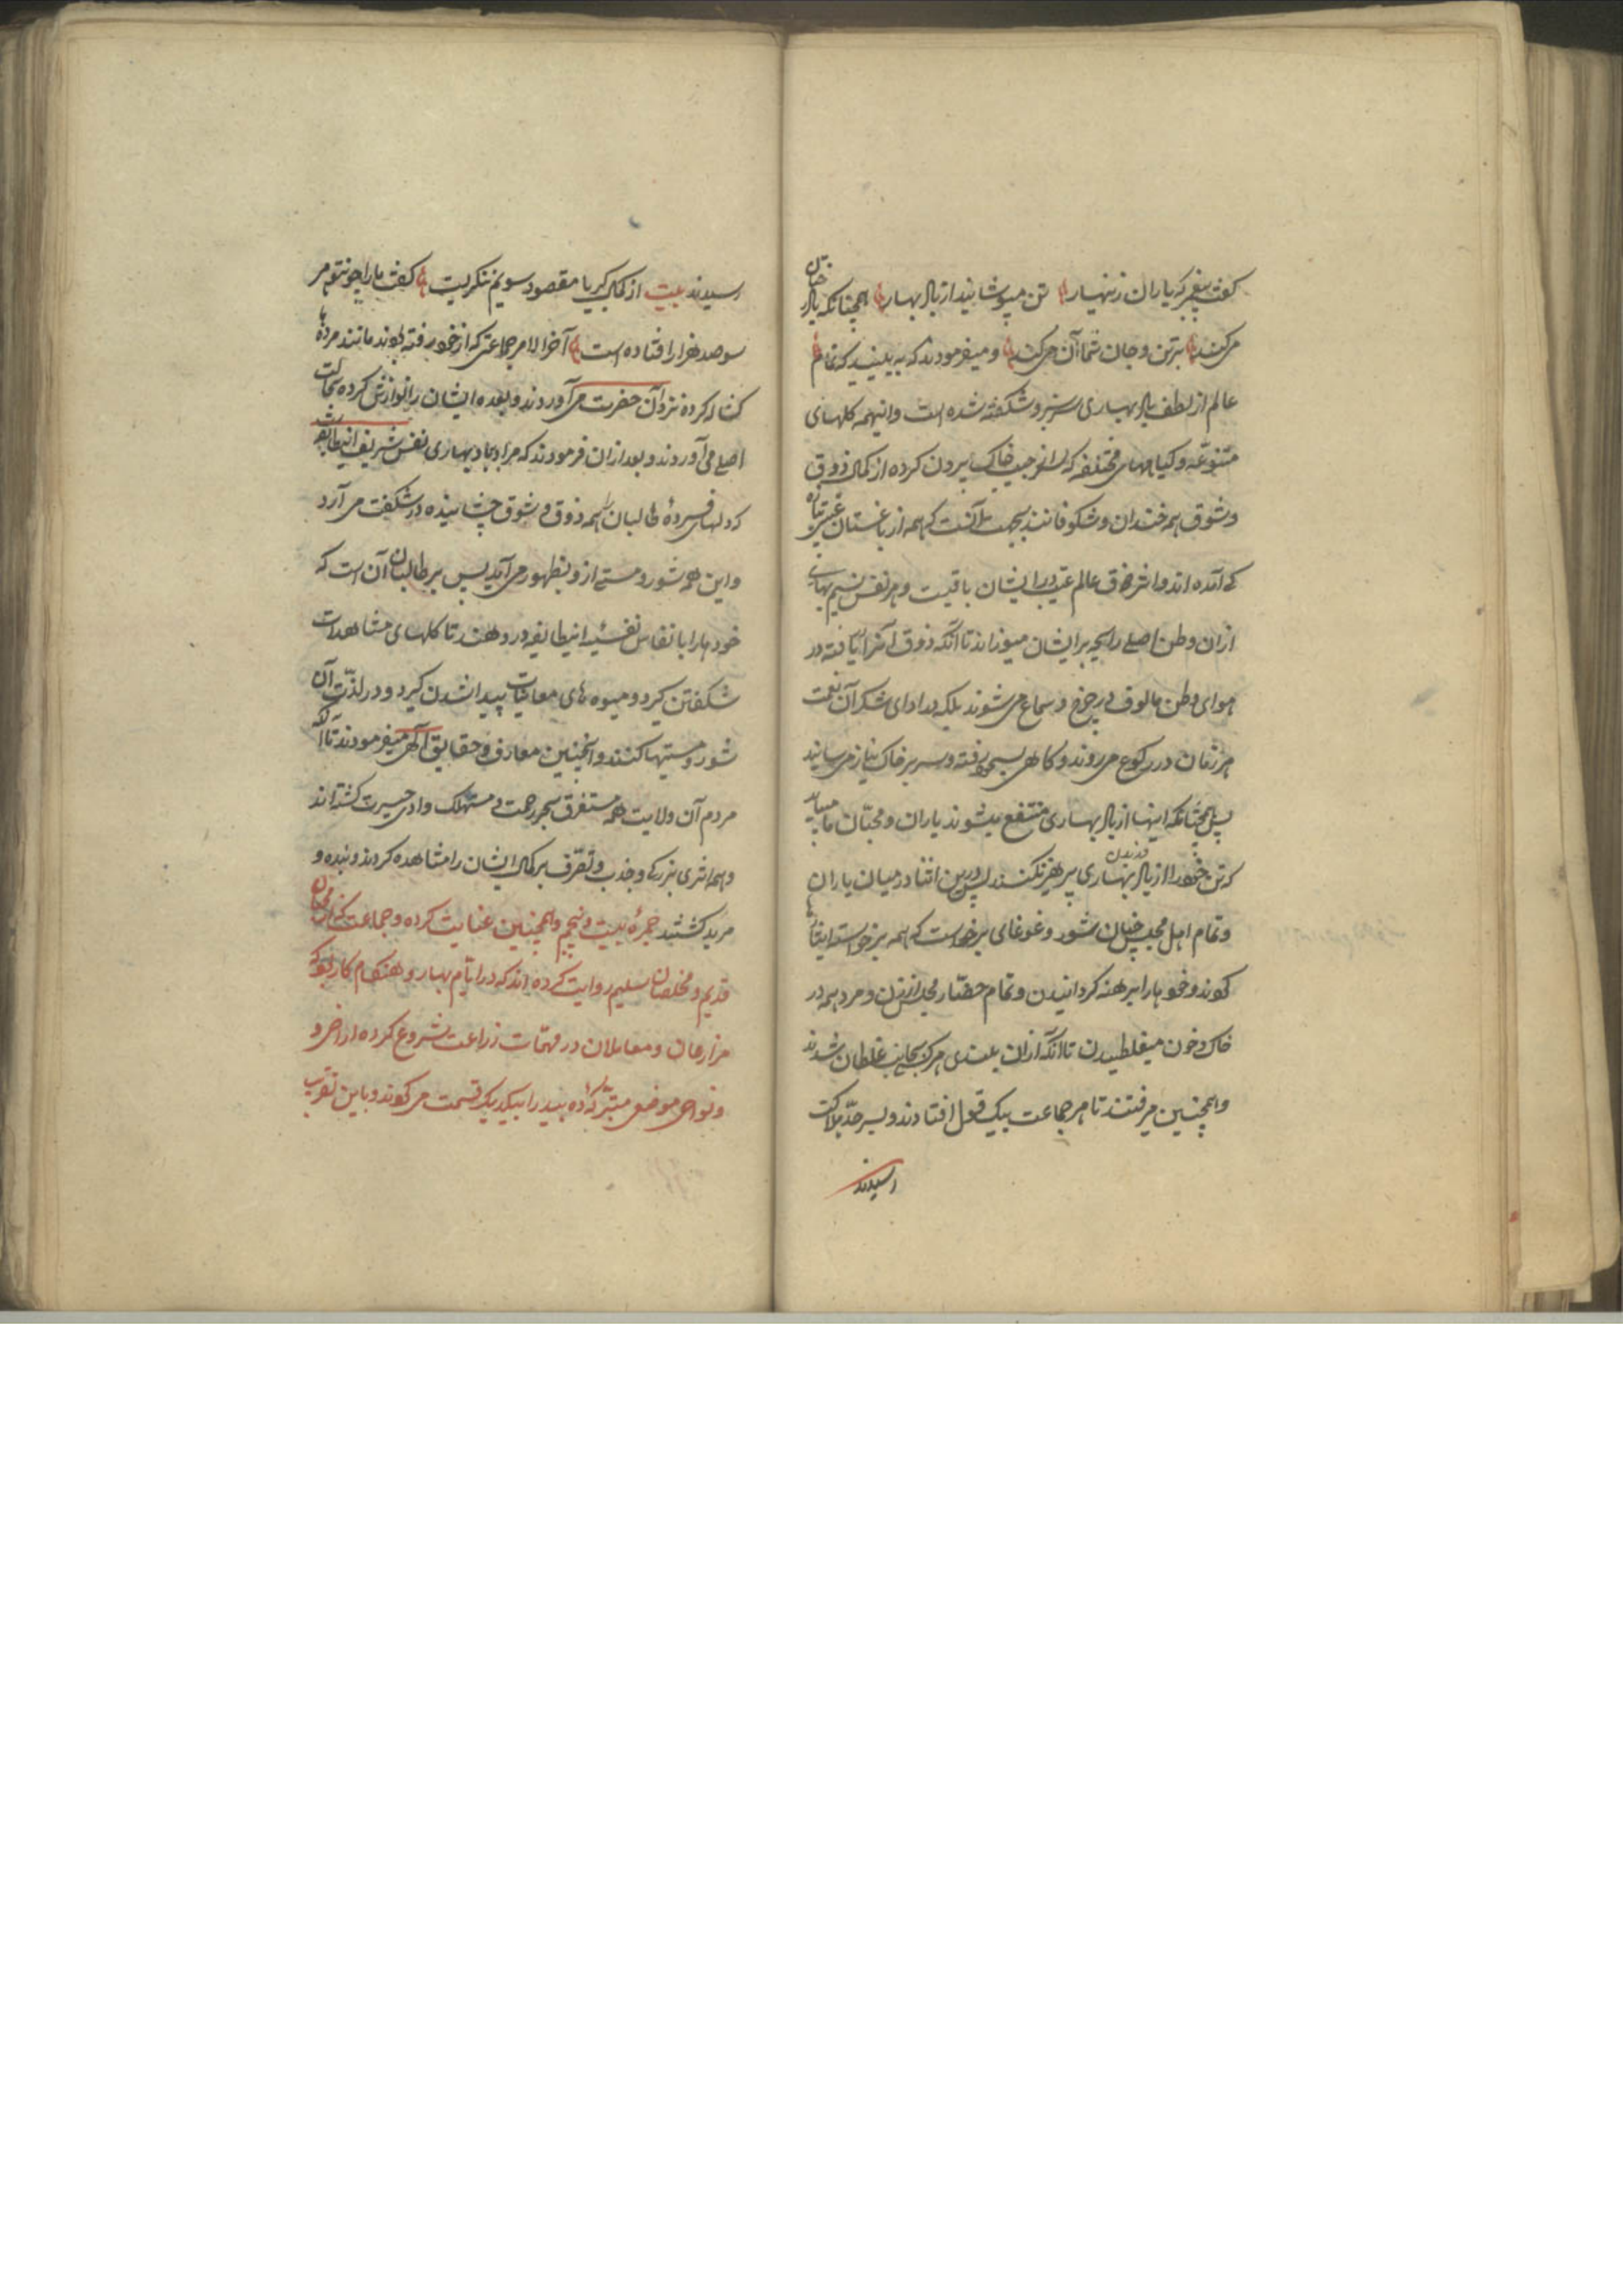 گفت پیغمبر که یاران زینهار تن مپوشانید از باد بهار همچنانکه باد خزان
میکند بر تن و جان شما آن میکند و میفرمودند که به بینید که تمام
عالم از لطف باد بهاری سرسبز و شکفته شده است و اینهمه کلهای
متنوعه و کیاههای مختلفه که سر از جیب خاک بیرون کرده از کمال ذوق
و شوق همه خندان و شکوفانند بجهت آنست که همه از باغستان غیب تازه
که آمده اند و اثر ذوق عالم غیب در ایشان باقیست و هر نفس نسیم بهاری
از ان وطن اصلی رایحه بر ایشان میوزاند تا آنکه ذوق آنرا یافته در
هوای وطن مالوف در چرخ و سماع می شوند بلکه در ادای شکر آن نعمت
هر زمان در رکوع می روند و کاهی بسجود رفته و سر بر خاک نیاز می سایند
پس همچنانکه اینها از باد بهاری منتفع میشوند یاران و محبّان ما میباید
که تن خود را از باد بهاری پرهیز نکنند پس درین اثنا در میان یاران
و تمام اهل مجلس چنان شور و غوغای برخواست که همه برخواسته
کویند و خود ها را برهنه کردانیدن و تمام حضّار مجلس از زن و مرد همه در
خاک و خون میغلطیدن تا آنکه از ان بلندی هر یک بجانب غلطان شدند
و همچنین میرفتند تا هر جماعت بیک قول افتادند و بسر حدّ هلاکت
رسیدند
رسیدند بیت از کمال کبریا مقصود سویم ننکریست گفت ما را چون تو هر
سو صد هزار افتاده است آخر الامر جماعتی که از خود رفته بودند مانند مرده ها
کشاله کرده نزد آن حضرت می آوردند و بعده ایشان را نوازش کرده بحالت
اصلی می آوردند و بعد از ان فرمودند که مراد بباد بهاری نفس شریف اینطایفه
که دلهای فسرده طالبان را همه ذوق و شوق چشانیده در شکفت می آرد
و این همه شور و مستی از و بظهور می آید پس بر طالبان آن است که
خود ها را با نفاس نفسیه اینطایفه در دهند تا کلهای مشاهدات
شکفتن کیرد و میوه های معاینات پیدا شدن کیرد و در لذّت آن
شور و مستیها کنند و اینچنین معارف و حقایق آکهی میفرمودند تا آنکه
مردم آن ولایت همه مستغرق بحر رحمت و مستهلک وادی حیرت کشته اند
و همه اثری بزرکی و جذب و تصرّف بر کمال ایشان را مشاهده کردند و بنده و
مرید کشتند حجره بیست و پنجم و همچنین عنایت کرده و جماعت محبان
قدیم و مخلصان سلیم روایت کرده اند که در ایّام بهار و هنکام کار بود که
مزارعان و معاملان در مهمّات زراعت شروع کرده اراضی و
و نواحی موضع متبرّکه ده بید را بیکدیک قسمت می کویند و باین تقریب